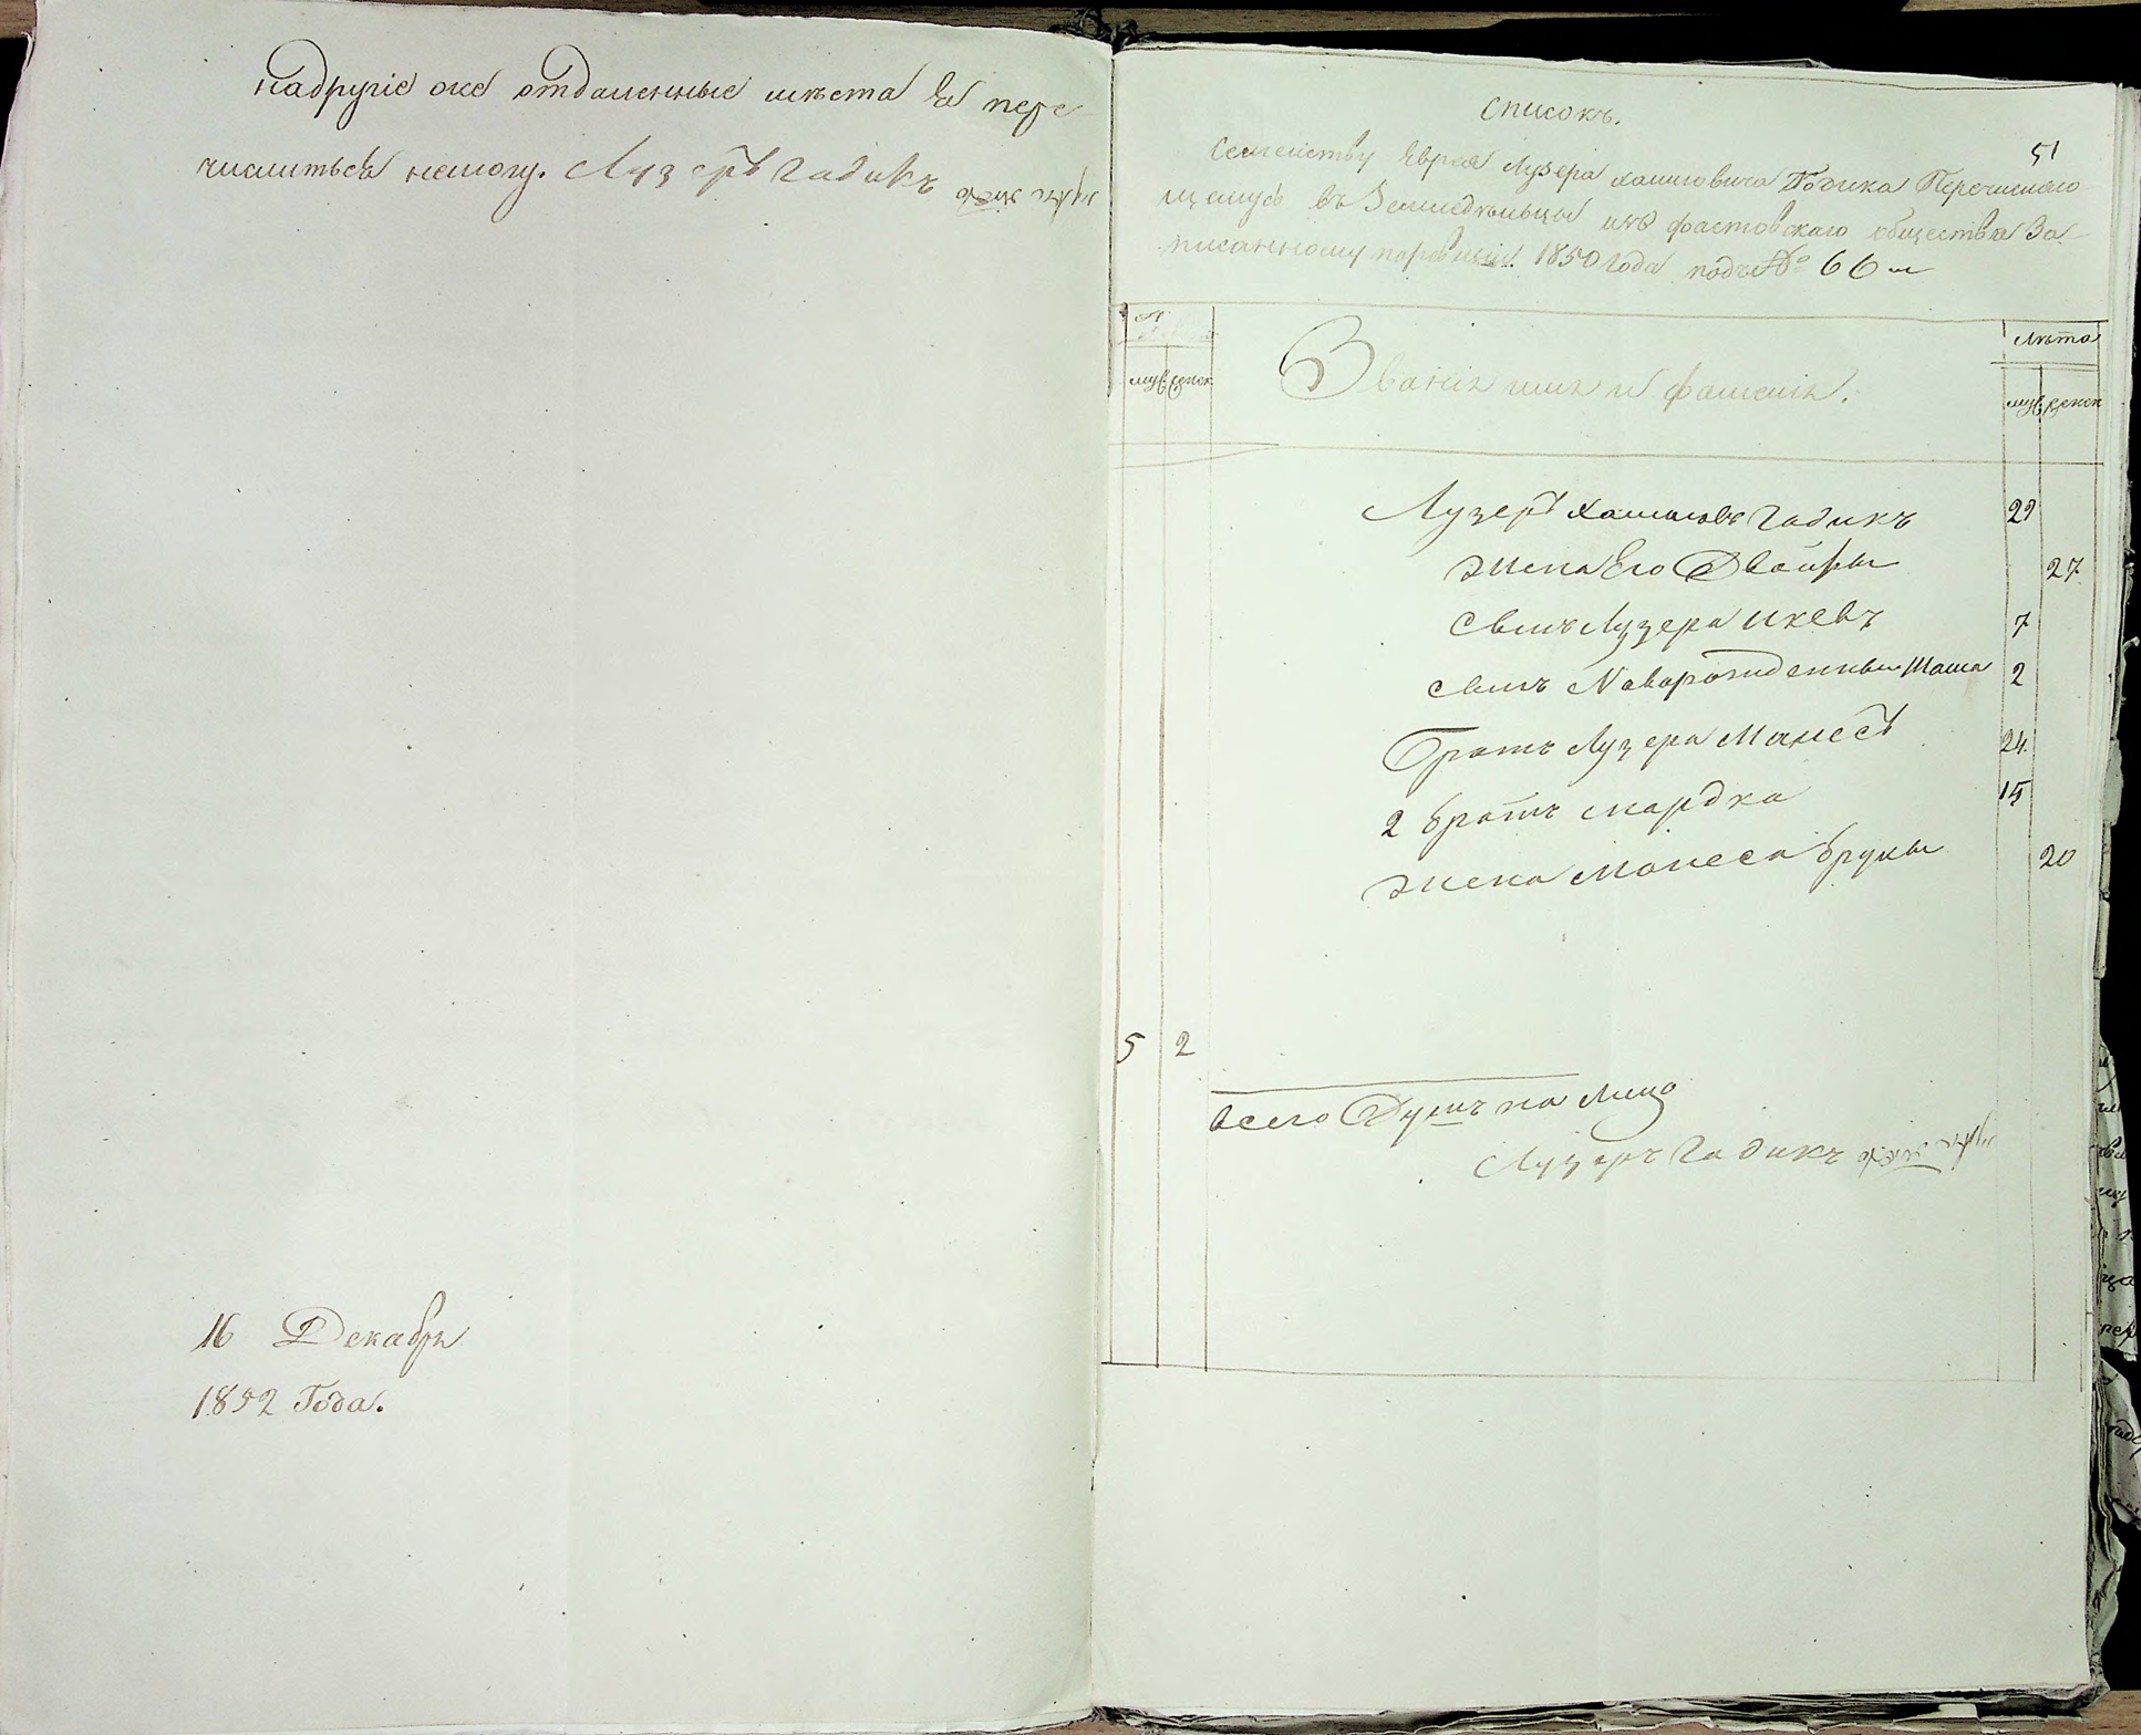 надругіе же отдаленные мѣста Я пере
числитьсѣ немогу. Лузеръ Гадикъ
16 Декабря
1852 Года.
51
Списокъ.
Семейству Еврея Лузера Хаимовича Годика Перечисляю
щемусѣ въ Земледѣльцы изъ фастовскаго общества За
писанному поревизіи 1850 года подъ № 66 м
муж. женск.
Званіе имя и фамилія.
Лѣта
муж. женск
Лузеръ Хаимовъ Гадикъ 29
жена Его Двойры 27
Сынъ Лузера Икевъ 7
сынъ Новорожденный Шама 2
Братъ Лузера Манесъ 24
2 братъ мардко 15
жена Манеса брукы 20
5 2
всего Душъ на Лицо
Лузеръ Гадикъ